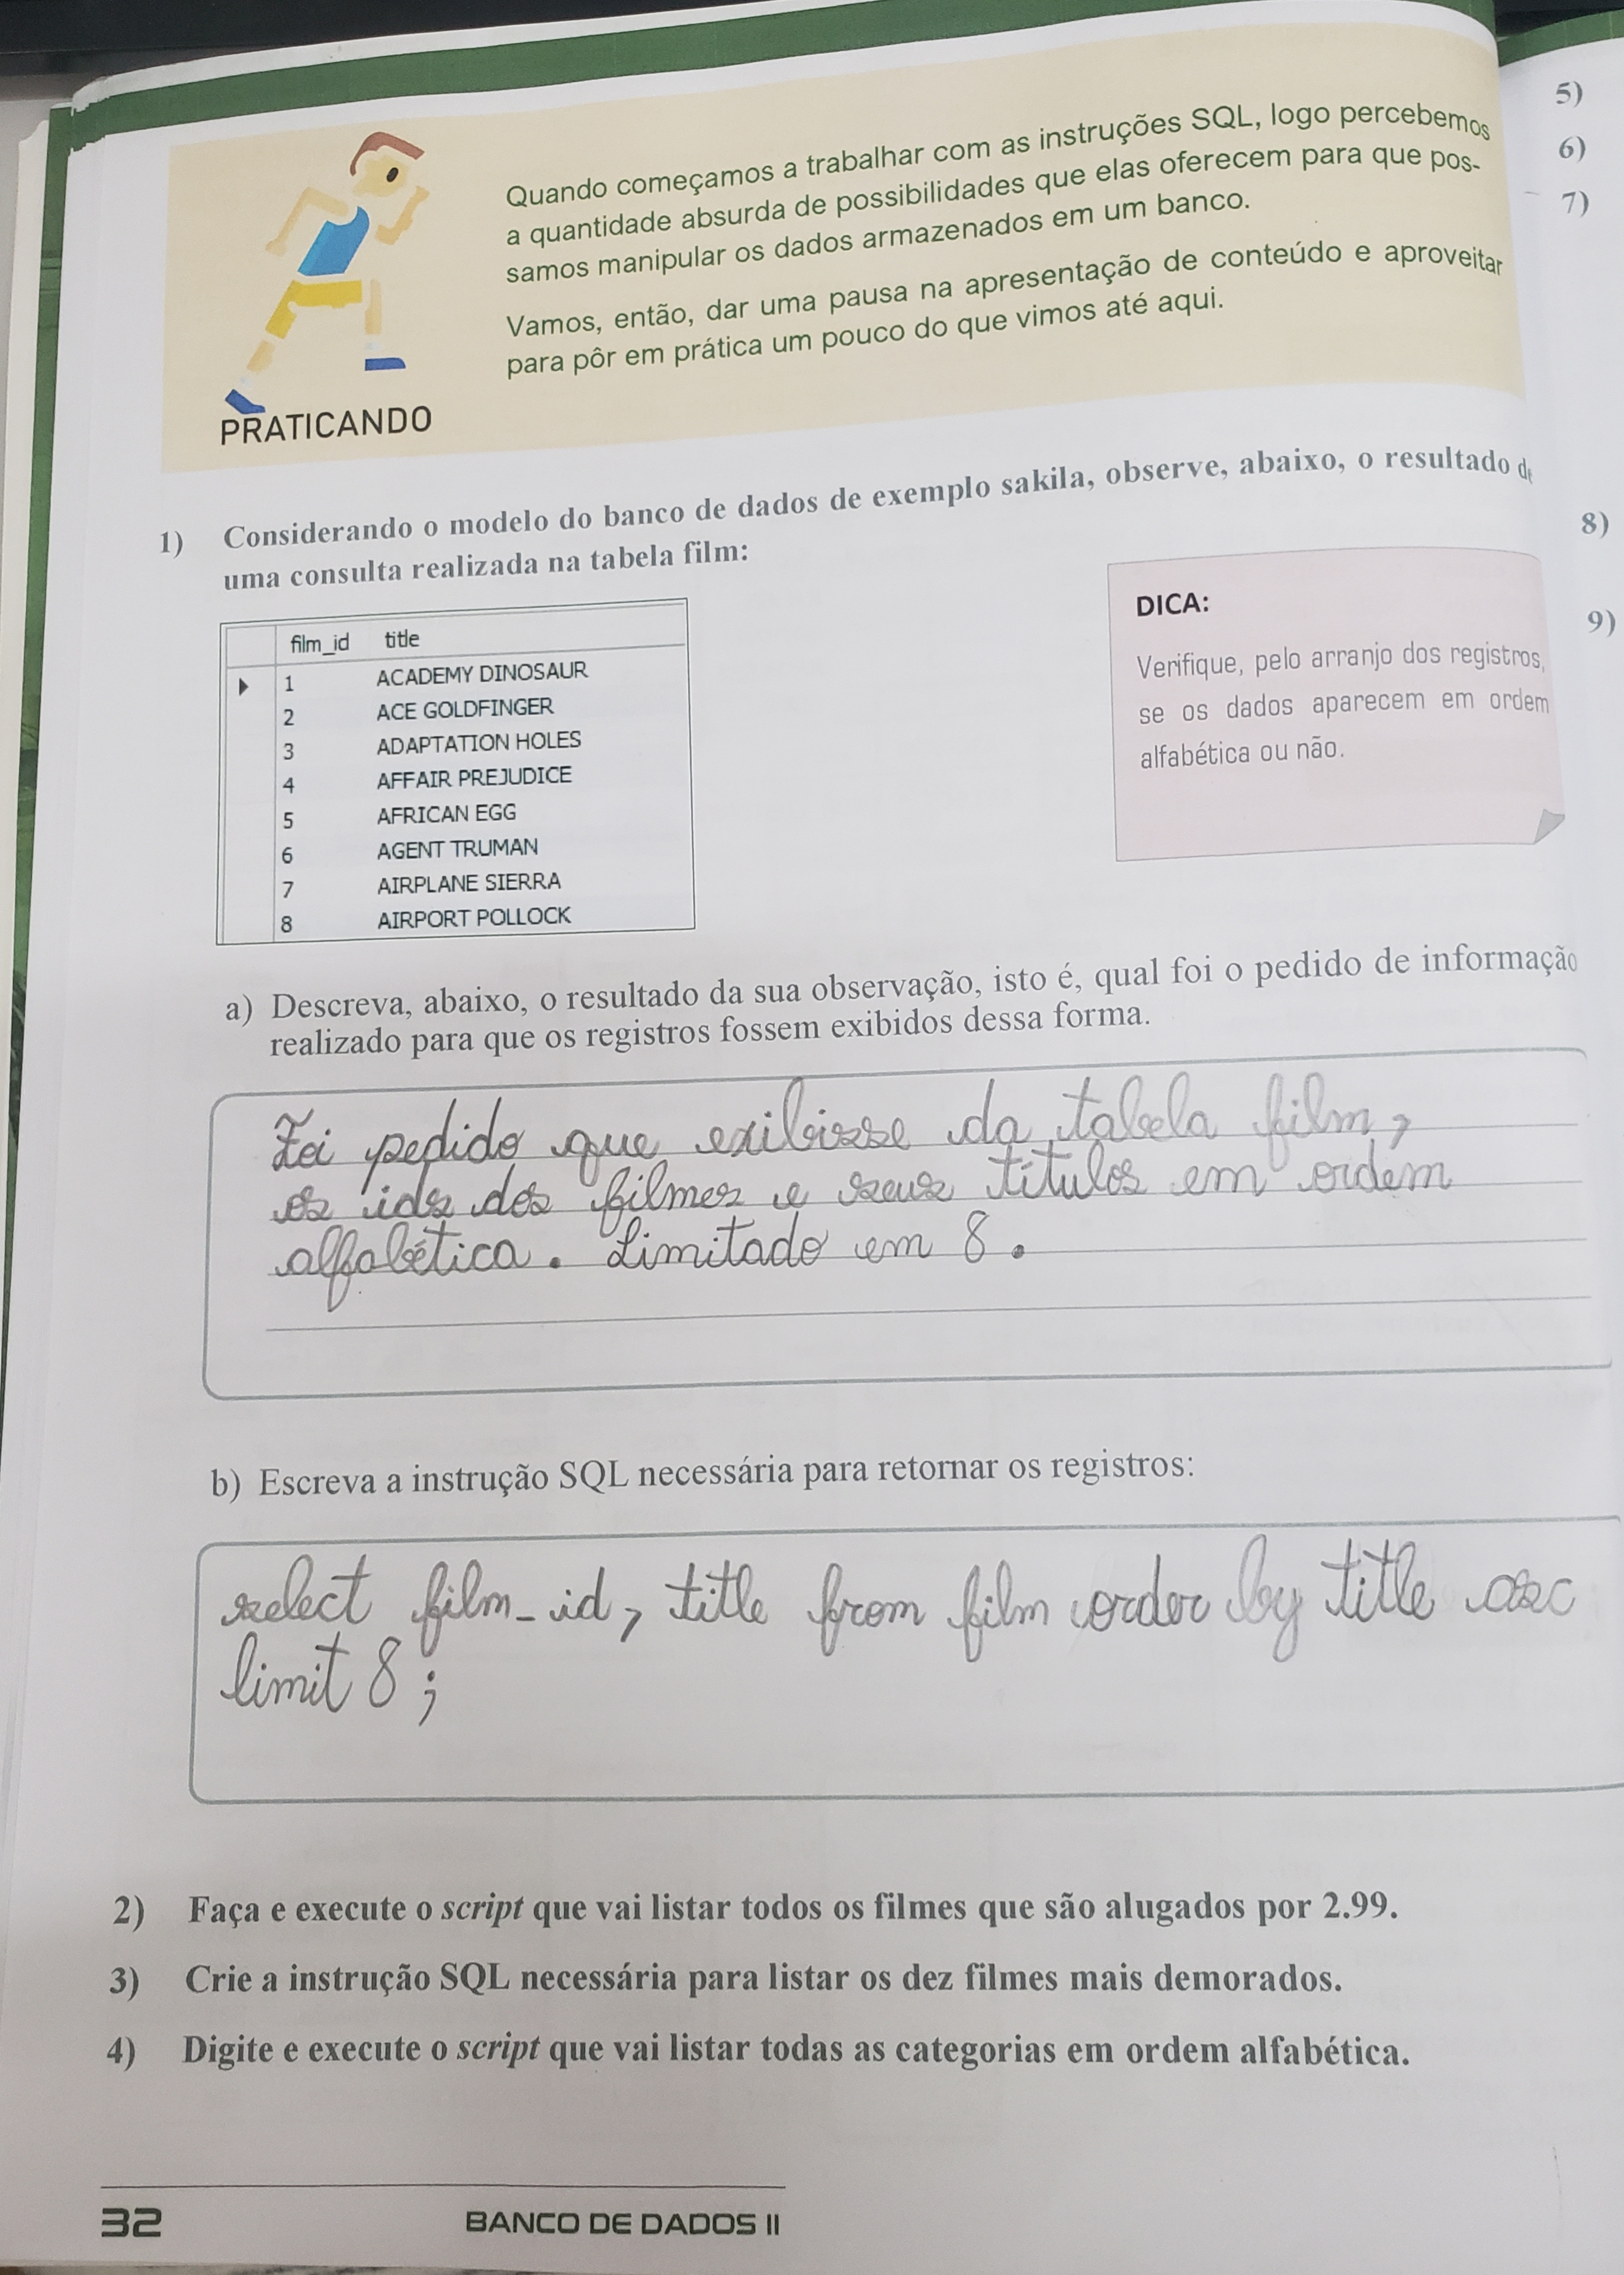 Quando começamos a trabalhar com as instruções SQL, logo percebemos
a quantidade absurda de possibilidades que elas oferecem para que pos-
samos manipular os dados armazenados em um banco.
Vamos, então, dar uma pausa na apresentação de conteúdo e aproveitar
para pôr em prática um pouco do que vimos até aqui.
PRATICANDO
1) Considerando o modelo do banco de dados de exemplo sakila, observe, abaixo, o resultado de
uma consulta realizada na tabela film:
film_id title
1 ACADEMY DINOSAUR
2 ACE GOLDFINGER
3 ADAPTATION HOLES
4 AFFAIR PREJUDICE
5 AFRICAN EGG
6 AGENT TRUMAN
7 AIRPLANE SIERRA
8 AIRPORT POLLOCK
DICA:
Verifique, pelo arranjo dos registros,
se os dados aparecem em ordem
alfabética ou não.
a) Descreva, abaixo, o resultado da sua observação, isto é, qual foi o pedido de informação
realizado para que os registros fossem exibidos dessa forma.
Foi pedido que exibisse da tabela film,
os ids dos filmes e seus títulos em ordem
alfabética. Limitado em 8.
b) Escreva a instrução SQL necessária para retornar os registros:
select film_id, title from film order by title asc
limit 8;
2) Faça e execute o script que vai listar todos os filmes que são alugados por 2.99.
3) Crie a instrução SQL necessária para listar os dez filmes mais demorados.
4) Digite e execute o script que vai listar todas as categorias em ordem alfabética.
32 BANCO DE DADOS II
5)
6)
7)
8)
9)